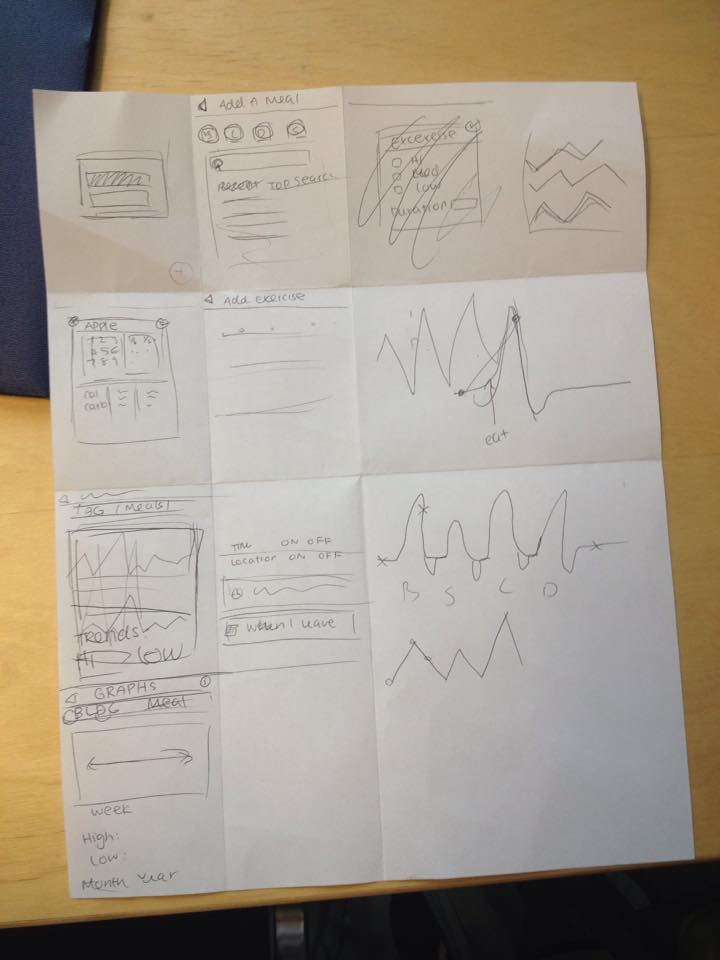 Add A Meal
Recent Top Search
Excercise
Hi
Med
Low
Duration
Add Exercise
Apple
1 2 3
4 5 6
7 8 9
cal
carb
eat
(Meals)
Trends
Hi
Low
Time ON OFF
Location ON OFF
When I leave
B S L D
GRAPHS
Meal
week
High:
Low:
Month Year